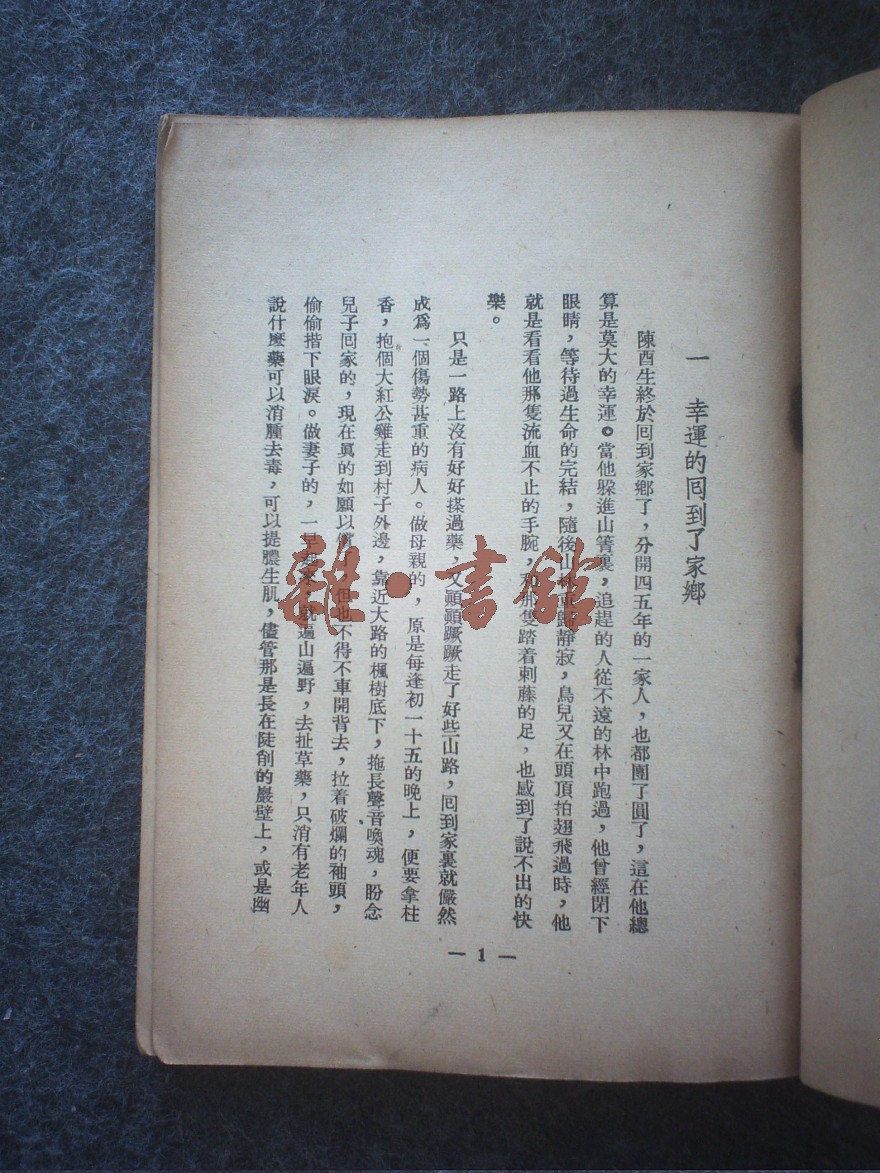 一　幸運的囘到了家鄉
陳酉生終於囘到家鄉了，分開四五年的一家人，也都團了圓了，這在他總
算是莫大的幸運。當他躲進山箐裏，追趕的人從不遠的林中跑過，他曾經閉下
眼睛，等待過生命的完結，隨後山林重歸靜寂，鳥兒又在頭頂拍翅飛過時，他
就是看看他那隻流血不止的手腕，和那雙踏着刺藤的足，也感到了說不出的快
樂。
只是一路上沒有好好搽過藥，又顛顛蹶蹶走了好些山路，囘到家裏就儼然
成爲一個傷勢甚重的病人。做母親的，原是每逢初一十五的晚上，便要拿柱
香，抱個大紅公雞走到村子外邊，靠近大路的楓樹底下，拖長聲音喚魂，盼念
兒子囘家的，現在眞的如願以償，但也不得不車開背去，拉着破爛的袖頭，
偷偷揩下眼淚。做妻子的，一早起來，就遍山遍野，去扯草藥，只消有老年人
說什麽藥可以消腫去毒，可以提膿生肌，儘管那是長在陡削的巖壁上，或是幽
— 1 —
雜·書館